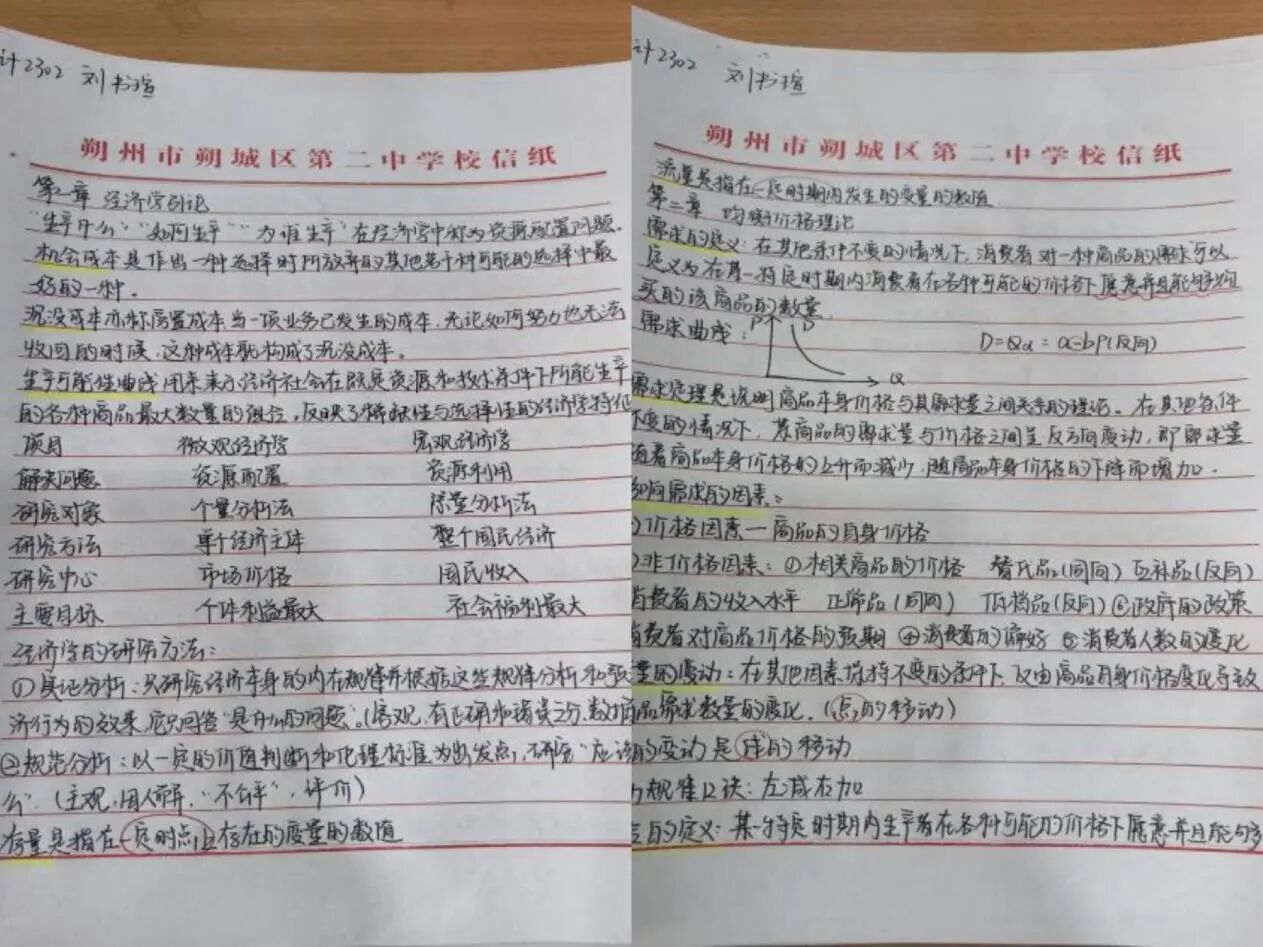 计2302 刘书瑄
朔州市朔城区第二中学校信纸
第一章 经济学引论
"生产什么""如何生产""为谁生产"在经济学中称为资源配置问题。
机会成本是作出一种选择时所放弃的其他若干种可能的选择中最
好的一种。
沉没成本亦称沉置成本当一项业务已发生的成本,无论如何努力也无法
收回的时候,这种成本就构成了沉没成本。
生产可能性曲线用来表示经济社会在既定资源和技术条件下所能生产
的各种商品最大数量的组合,反映了稀缺性与选择性的经济学特征
项目 微观经济学 宏观经济学
解决问题 资源配置 资源利用
研究对象 个量分析法 总量分析法
研究方法 单个经济主体 整个国民经济
研究中心 市场价格 国民收入
主要目标 个体利益最大 社会福利最大
经济学的研究方法:
①实证分析:只研究经济本身的内在规律并根据这些规律分析和预
济行为的效果,它只回答"是什么的问题"。(客观,有正确和错误之分,
②规范分析:以一定的价值判断和伦理标准为出发点,研究"应该
么"。(主观,因人而异,"不公平",评价)
存量是指在一定时点上存在的变量的数值
计2302 刘书瑄
朔州市朔城区第二中学校信纸
流量是指在一定时期内发生的变量的数值
第二章 均衡价格理论
需求的定义:在其他条件不变的情况下,消费者对一种商品的需求可以
定义为在某一特定时期内消费者在各种可能的价格下愿意并且能够购
买的该商品的数量
需求曲线: P D Q D=Qd=a-bP(反向)
需求定理是说明商品本身价格与其需求量之间关系的理论。在其他条件
不变的情况下,某商品的需求量与价格之间呈反方向变动,即需求量
随着商品本身价格的上升而减少,随商品本身价格的下降而增加.
影响需求的因素:
)价格因素—商品的自身价格
)非价格因素:①相关商品的价格 替代品(同向) 互补品(反向)
消费者的收入水平 正常品(同向) 低档品(反向)⑥政府的政策
消费者对商品价格的预期 ④消费者的偏好 ⑤消费者人数的变化
量的变动:在其他因素保持不变的条件下,仅由商品自身价格变化导致
商品需求数量的变化.(点的移动)
的变动是线的移动
规律口诀:左减右加
的定义:某一特定时期内生产者在各种可能的价格下愿意并且能够